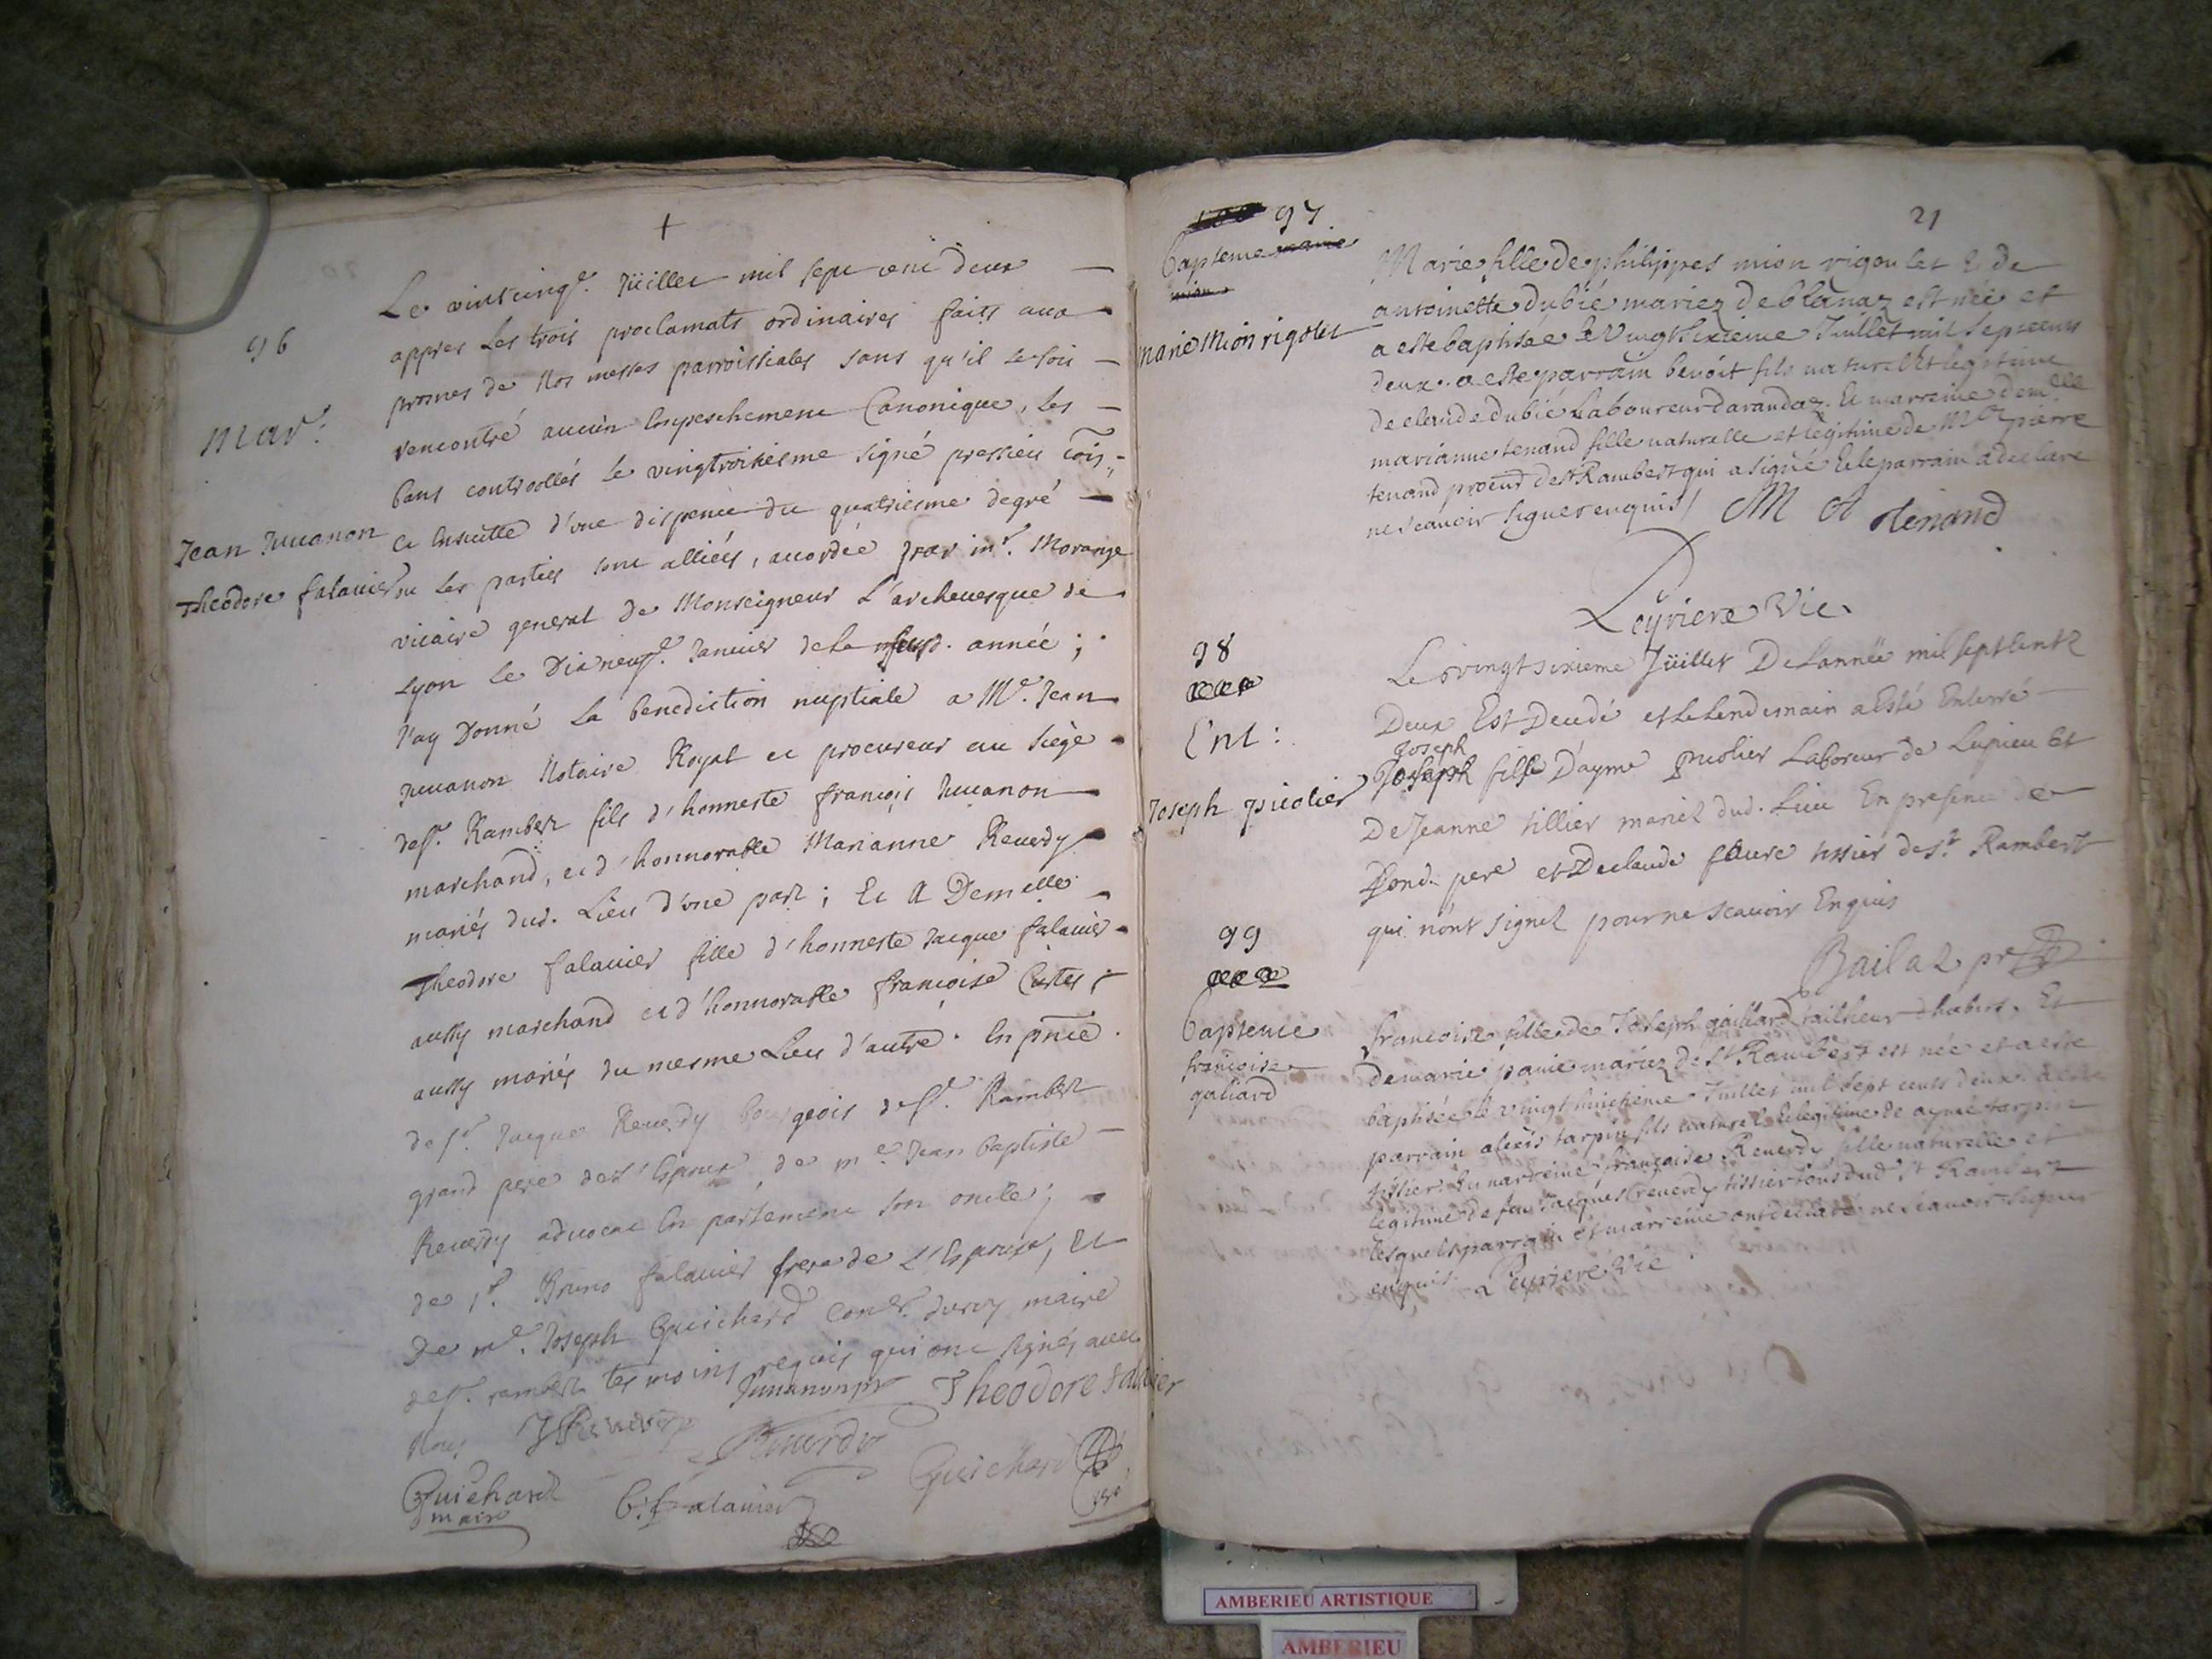 +
96
mar:
Jean Juuanon
Theodore falauier
Le vintcinq.e Jüillet mil sept cent deux
appres Les trois proclamats ordinaires faits aux
prosnes de Nos messes parroissiales sans qu'il se soit
rencontré aucun Empeschement Canonique, Les
bans controollés Le vingtroisiesme signé pressieu
Et Ensuitte d'une dispense du quatriesme degré
ou Les parties sont alliées, accordée par mr. Morange
vicaire general de Monseigneur L'archeuesque de
Lyon Le Dixneuf.e Januier de la année ;
J'ay Donné La benediction nuptiale a Me. Jean
Juuanon Notaire Royal et procureur au siege
de st. Rambert fils d'honneste francois Juuanon
marchand, et d'honnorable Marianne Reuerdy
mariés dud. Lieu d'une part ; Et A Demelle
Theodore falauier fille d'honneste Jacque falauier
aussy marchand et d'honnorable francoise
aussy mariés du mesme Lieu d'autre. En pñce
de sr Jacque Reuerdy bourgeois de st. Rambert
grand pere de L'Espoux, de me. Jean baptiste
Reuerdy aduocat En parlement son oncle ;
de sr. Bruno falauier frere de L'Espouse, Et
De me. Joseph Guichard Coner. du roy maire
de st. rambert tesmoins requis qui ont signés auec
Nous Juuanon Theodore falauier
JReuerdy Reuerdy
Guichard B: falauier Guichard
maire
21
97
bapteme
marie Mion rigolet
Marie fille de philippes mion rigoulet & de
antoinette dubié mariez de blanaz est née et
a este baptisée le vingt sixieme Juillet mil sept cens
deux. a este parrain benoit fils naturel et legitime
de claude dubié Laboureur d'arandaz. Et marreine demelle
marianne tenand fille naturelle et legitime de Mre pierre
tenand de st Rambert qui a signé & le parrain a declaré
ne scauoir signer enquis / M A tenand
Leyriere Vic
98
Ent :
Joseph picolier
Le vingt sixieme Jüillet De Lannée mil sept Centz
Deux Est Decedé et le Lendemain a Esté Enterré
Joseph
fils D'ayme picolier Laboreur de Lupieu Et
De Jeanne tillier mariez dud. Lieu En presence de
pere et De claude faure tissier de st. Rambert
qui n'ont signez pour ne scauoir Enquis
Bailaz
99
bapteme
francoise
galiard
francoise fille de Joseph gaillard tailheur dhabits. Et
de marie mariez de St Rambert est née et a este
baptisée le vingt huictieme Juillet mil sept cens deux. a este
parrain alexis tarpin fils naturel & legitime de aymé tarpin
tissier. Et marreine françoise Reuerdy fille naturelle et
legitime de feu Jacques reuerdy tissier tous dud St Rambert
lesquels parrain et marreine ont declaré ne scauoir signer
enquis Leyriere Vic
AMBERIEU ARTISTIQUE
AMBERIEU